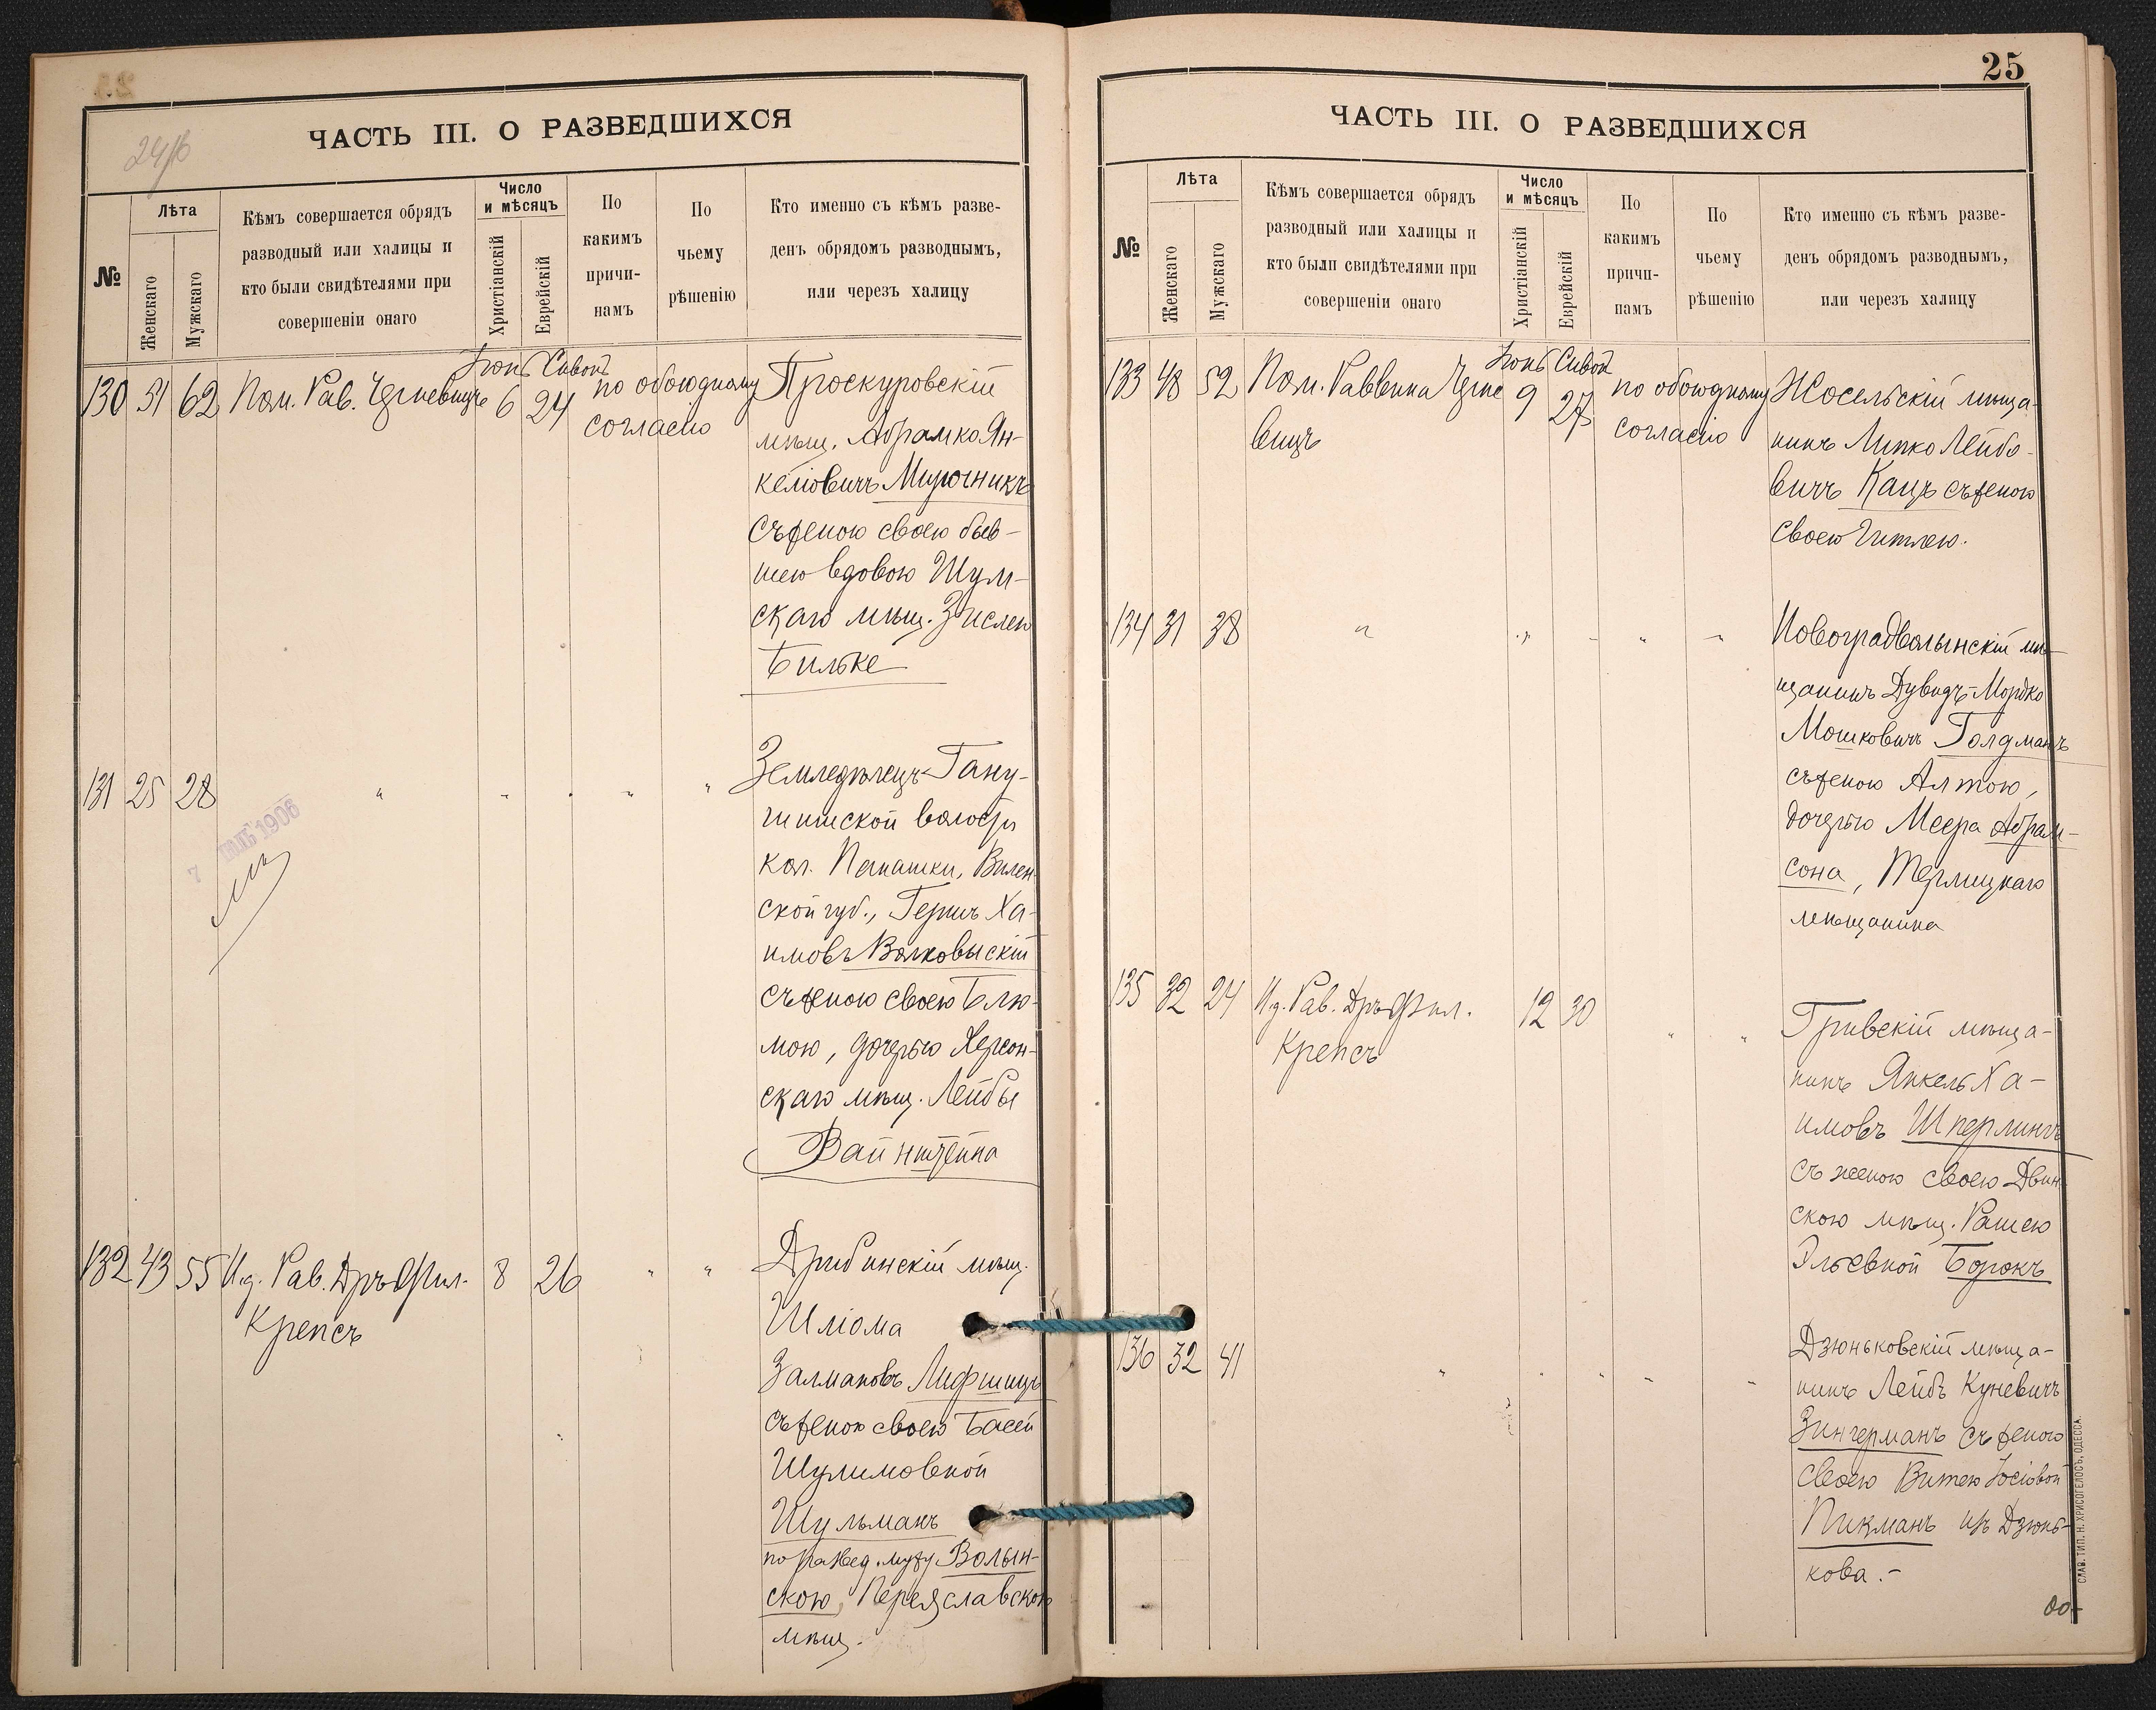 24об
ЧАСТЬ III. О РАЗВЕДШИХСЯ
№
Лѣта
Женскаго
Мужскаго
Кѣмъ совершается обрядъ
разводный или халицы и
кто были свидѣтелями при
совершеніи онаго
Число
и мѣсяцъ
Христіанскій
Еврейскій
По
какимъ
причи-
намъ
По
чьему
рѣшенію
Кто именно съ кѣмъ разве-
денъ обрядомъ разводнымъ,
или черезъ халицу
Іюнь Сивонъ
130 51 62 Пом. Рав. Черневицъ 6 24 по обоюдному
согласію
Проскуровскій
мѣщ. Абрамко Ян-
келіовичъ Мирочникъ
съ женою своею быв-
шею вдовою Шум-
скаго мѣщ. Зислею
Бильке
131 25 28 " " " " "
7 1906
Земледѣлецъ Гану-
шишской волости
кол. Панашки, Вилен
ской губ., Гершъ Ха-
имовъ Волковыскій
съ женою своею Блю-
мою, дочерью Херсон-
скаго мѣщ. Лейбы
Вайнштейна
132 43 55 И.д. Рав. Дръ Фил. 8 26 " "
Крепсъ
Дрибинскій мѣщ.
Шліома
Залмановъ Лифшицъ
съ женою своею Басей
Шулимовной
Шульманъ
по развед. мужу Волын-
скою, Переяславскою
мѣщ.
25
ЧАСТЬ III. О РАЗВЕДШИХСЯ
№
Лѣта
Женскаго
Мужскаго
Кѣмъ совершается обрядъ
разводный или халицы и
кто были свидѣтелями при
совершеніи онаго
Число
и мѣсяцъ
Христіанскій
Еврейскій
По
какимъ
причи-
намъ
По
чьему
рѣшенію
Кто именно съ кѣмъ разве-
денъ обрядомъ разводнымъ,
или черезъ халицу
Іюнь Сивон
133 48 52 Пом. Раввина Черне 9 27 по обоюдному
вицъ
согласію
Жосельскій мѣща-
нинъ Липко Лейбо-
вичъ Кацъ съ женою
своею Гитлею.
134 31 38 " " " "
Новоградволынскій мѣ-
щанинъ Дувидъ-Мордко
Мошковичъ Голдманъ
съ женою Алтою,
дочерью Меера Абрам-
сона, Терлицкаго
мѣщанина
135 32 24 И.д. Рав. Дръ Фил. 12 30 " "
Крепсъ
Гривскій мѣща-
нинъ Янкель Ха-
имовъ Шперлингъ
съ женою своею Двин
скою мѣщ. Рашею
Эльевной Борокъ
136 32 41 " " " " "
Дзюньковскій мѣща-
нинъ Лейбъ Куневичъ
Зингерманъ съ женою
своею Витею Іосіовой
Пикманъ изъ Дзюнь-
кова.-
СЛАВ. ТИП. Н. ХРИСОГЕЛОСЪ, ОДЕССА.